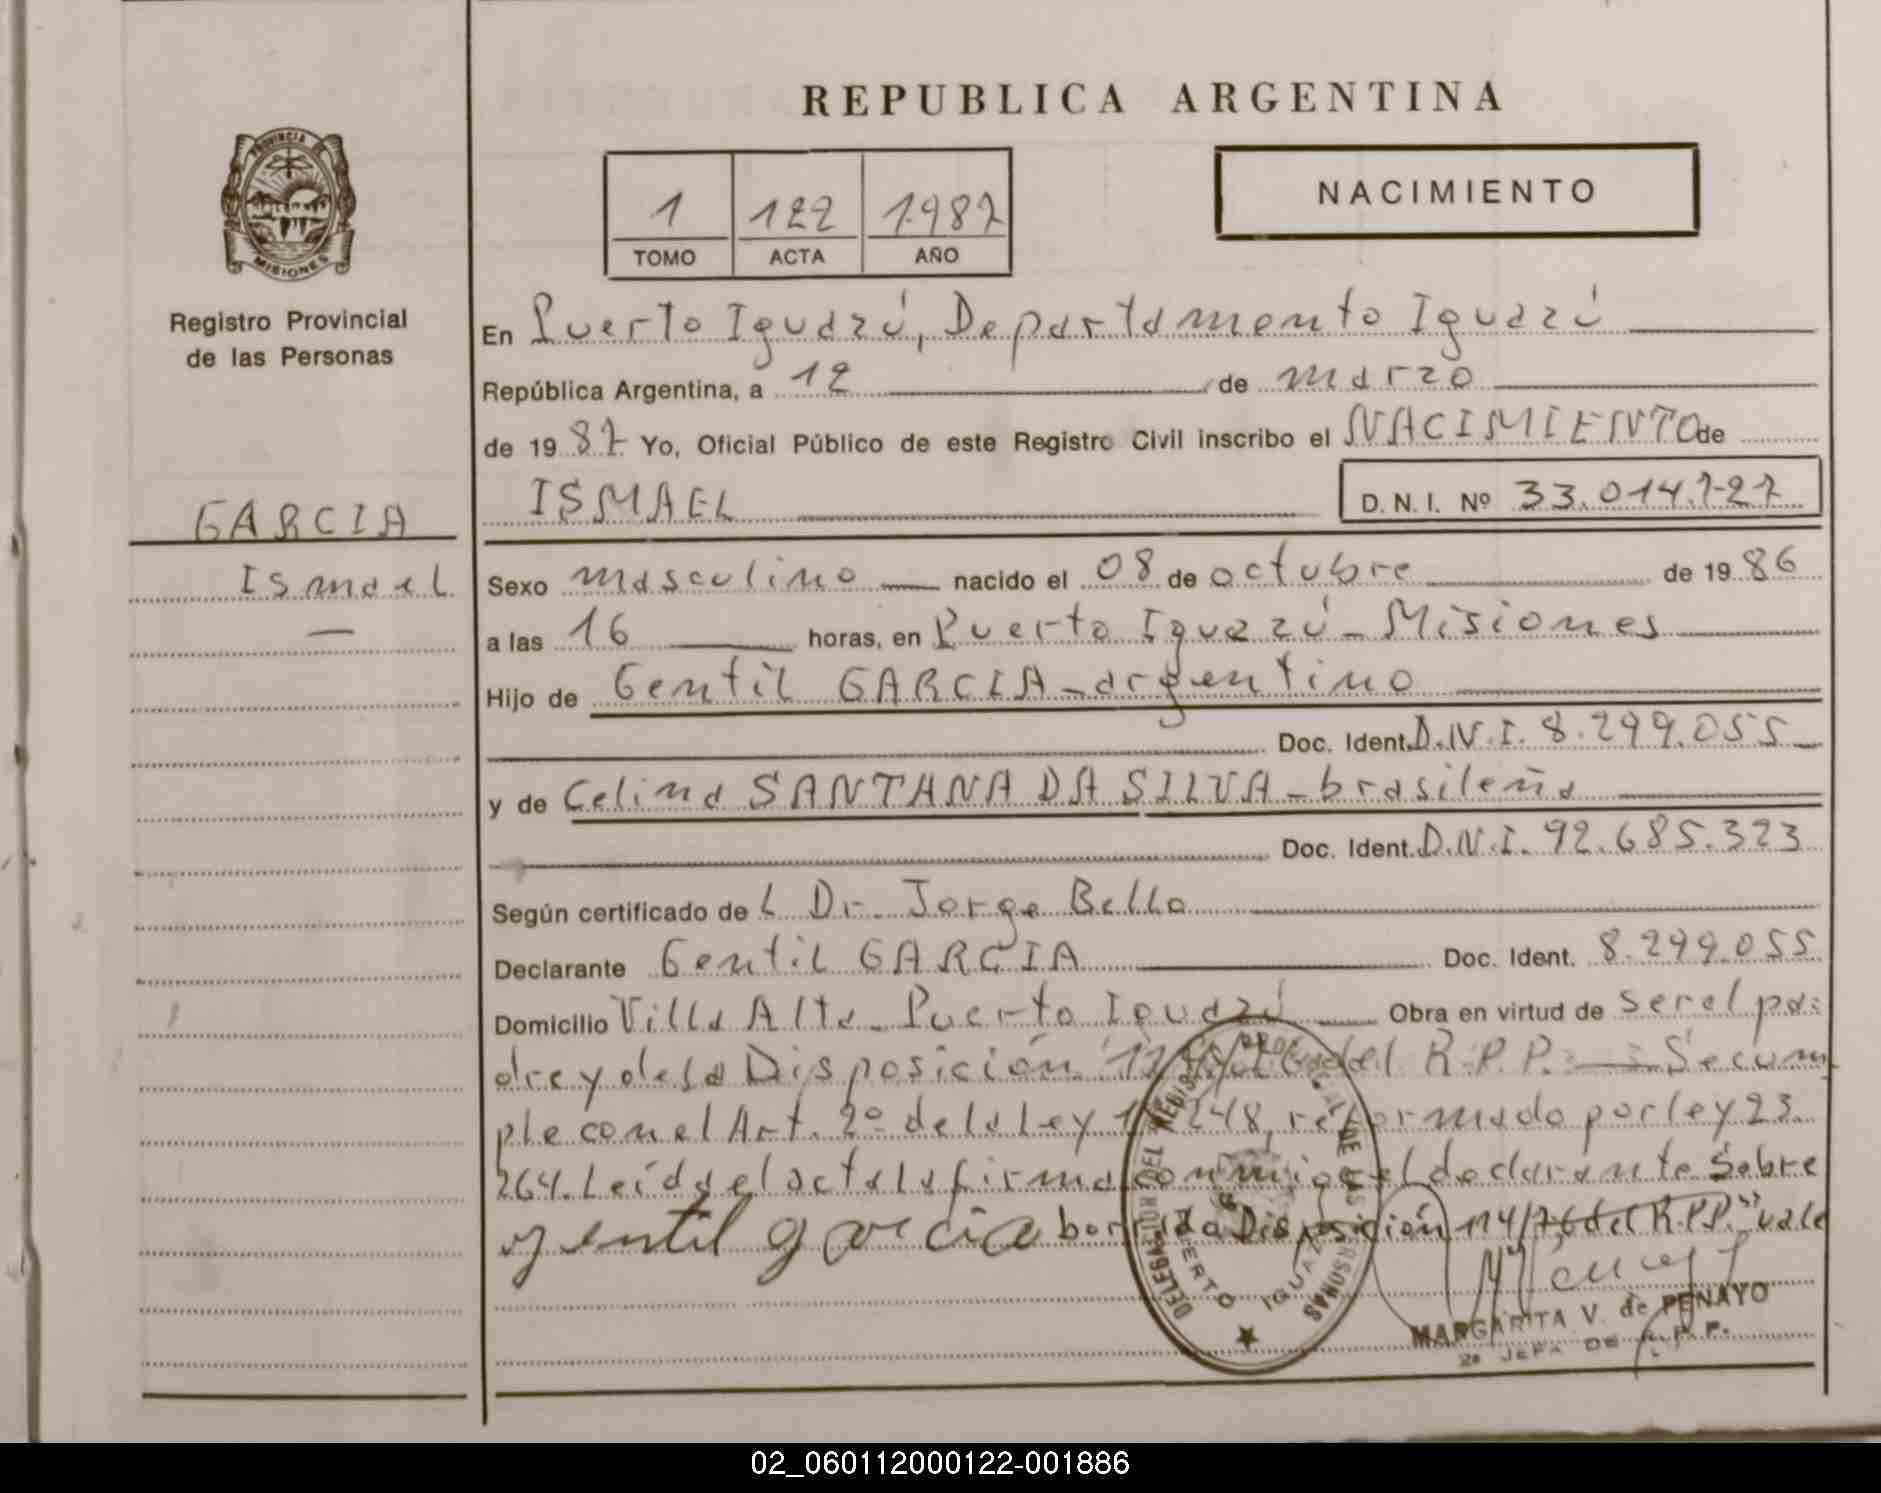 REPUBLICA ARGENTINA
PROVINCIA DE
MISIONES
Registro Provincial
de las Personas
1 122 1987
TOMO ACTA AÑO
NACIMIENTO
En Puerto Iguazú, Departamento Iguazú
República Argentina, a 12 de marzo
de 1987 Yo, Oficial Público de este Registro Civil inscribo el NACIMIENTO de
ISMAEL D. N. I. Nº 33.014.727
GARCIA
Ismael
Sexo masculino nacido el 08 de octubre de 1986
a las 16 horas, en Puerto Iguazú - Misiones
Hijo de Gentil GARCIA - argentino
Doc. Ident. D.N.I. 8.299.055
y de Celina SANTANA DA SILVA - brasileña
Doc. Ident. D.N.I. 92.685.323
Según certificado de l Dr. Jorge Bello
Declarante Gentil GARCIA Doc. Ident. 8.299.055
Domicilio Villa Alta - Puerto Iguazú Obra en virtud de ser el pa-
dre y de la Disposición del R.P.P. Se cum
ple con el Art. 2º de la Ley 248, reformado por ley 23.
264. Leída el acta la firma conmigo el declarante. Sobre
gentil garcia borrado Disposición 114/76 del R.P.P." vale
DELEGACION DEL REGISTRO PROVINCIAL DE LAS PERSONAS
PUERTO IGUAZU
MARGARITA V. de PENAYO
2ª JEFA DE R. P. P.
02_060112000122-001886